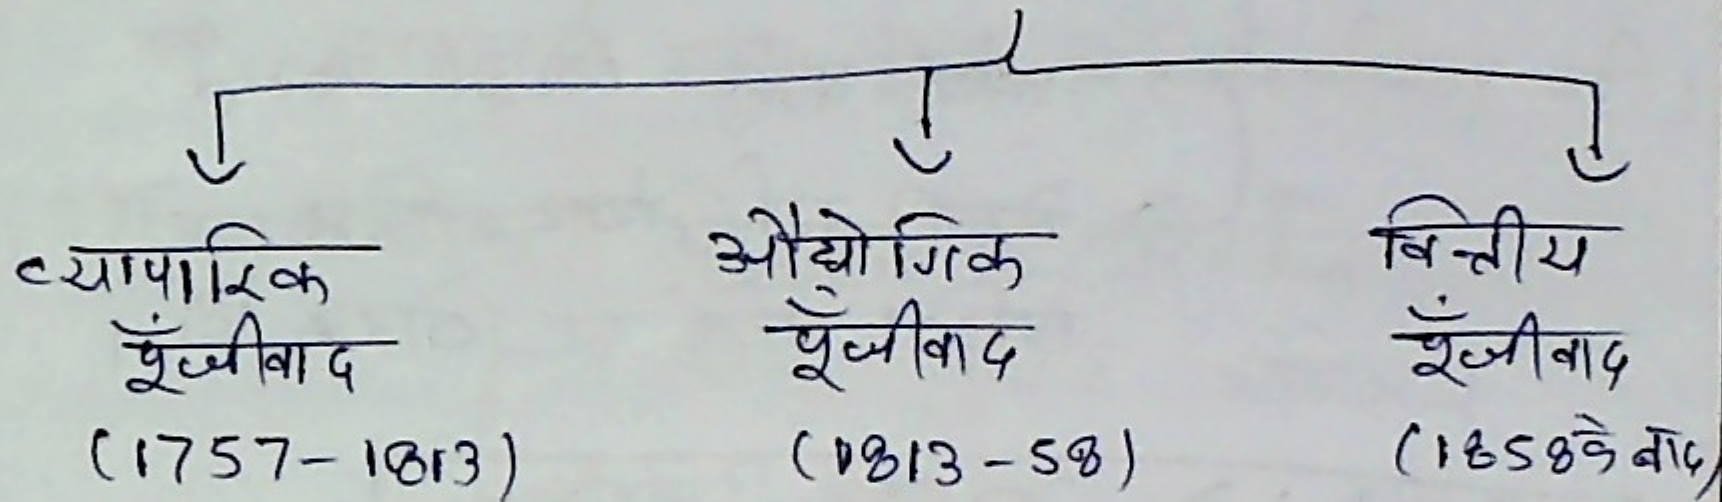 व्यापारिक
पूँजीवाद
(1757-1813)
औद्योगिक
पूँजीवाद
(1813-58)
वित्तीय
पूँजीवाद
(1858 के बाद)